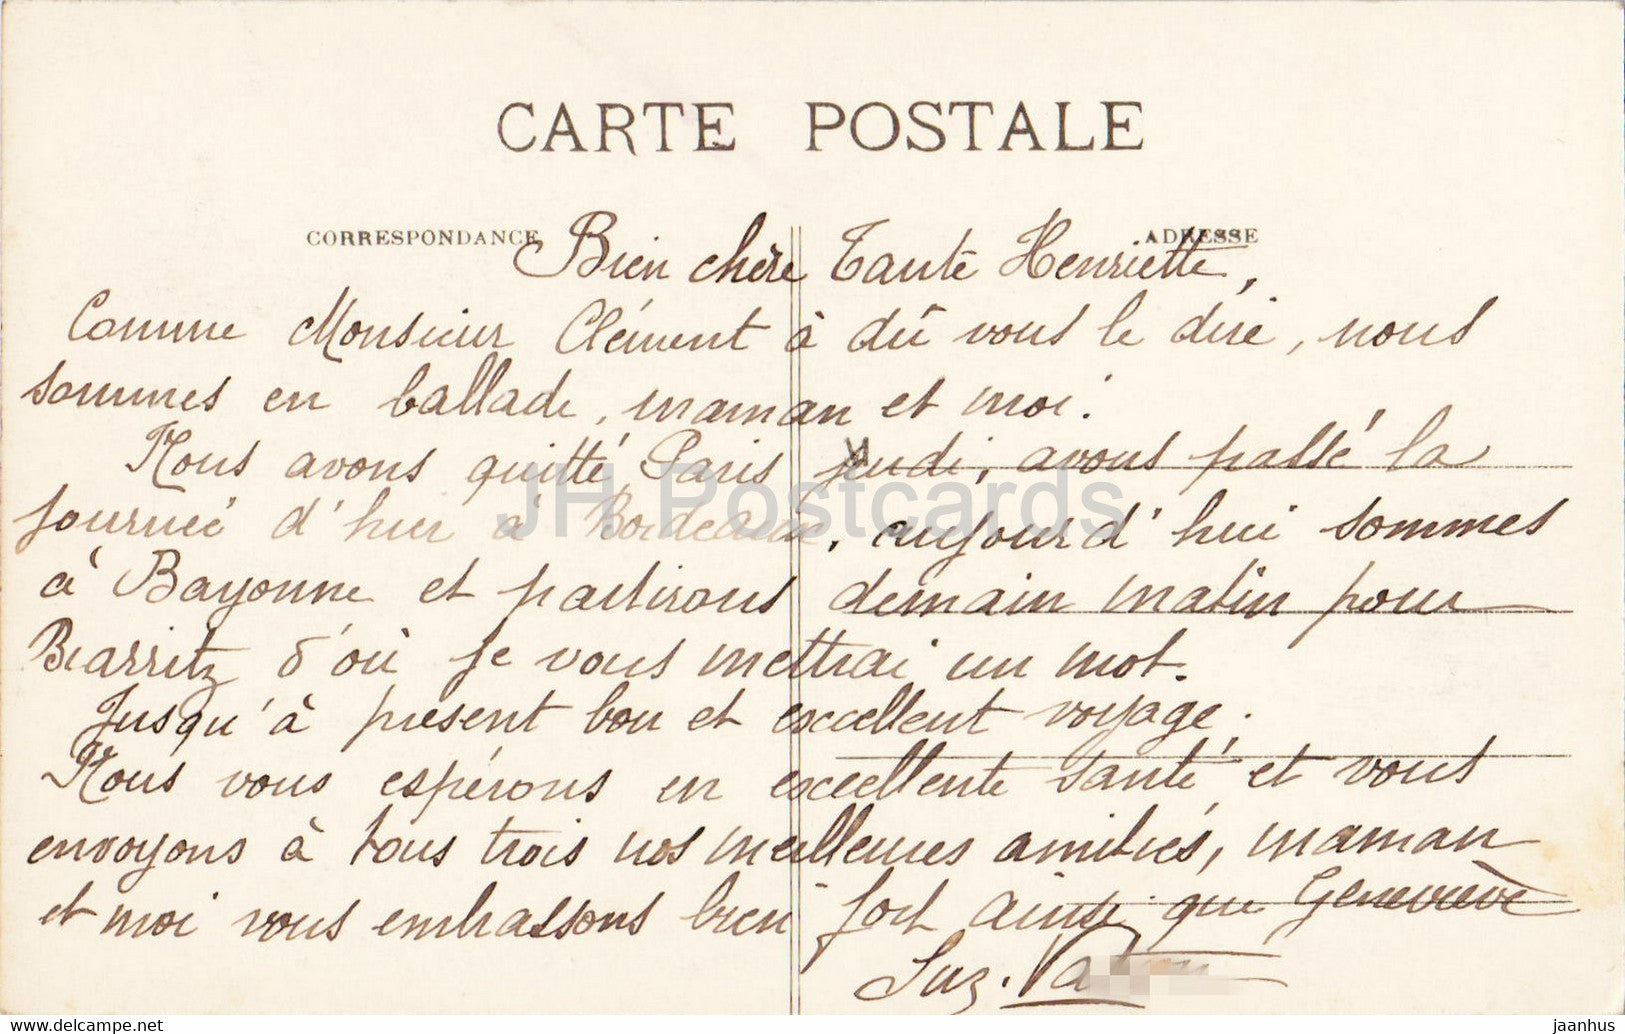 CARTE POSTALE
CORRESPONDANCE
ADRESSE
Bien chère Tante Henriette,
Comme Monsieur Clément à dû vous le dire, nous
sommes en ballade, maman et moi.
Nous avons quitté Paris jeudi, avons passé la
journée d'hier à Bordeaux, aujourd'hui sommes
à Bayonne et partirons demain matin pour
Biarritz d'où je vous mettrai un mot.
Jusqu'à présent bon et excellent voyage.
Nous vous espérons en excellente santé et vous
envoyons à tous trois nos meilleures amitiés, maman
et moi vous embrassons bien fort ainsi que Geneviève
Suz.
JH Postcards
delcampe.net
jaanhus